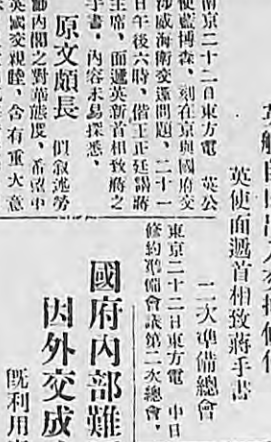 英使面遞首相致蔣手書
南京二十二日東方電 英公
使藍博森、刻在京與國府交
涉威海衛交還問題、二十一
日午後六時、偕王正廷謁蔣
主席、面遞英新首相致蔣之
手書、內容未易探悉、
原文頗長 但叙述勞
働內閣之對華態度、希望中
英國交親睦、含有重大意
二次準備總會
東京二十二日東方電 中日
修約準備會議第二次總會、
國府內部難
因外交成
旣利用